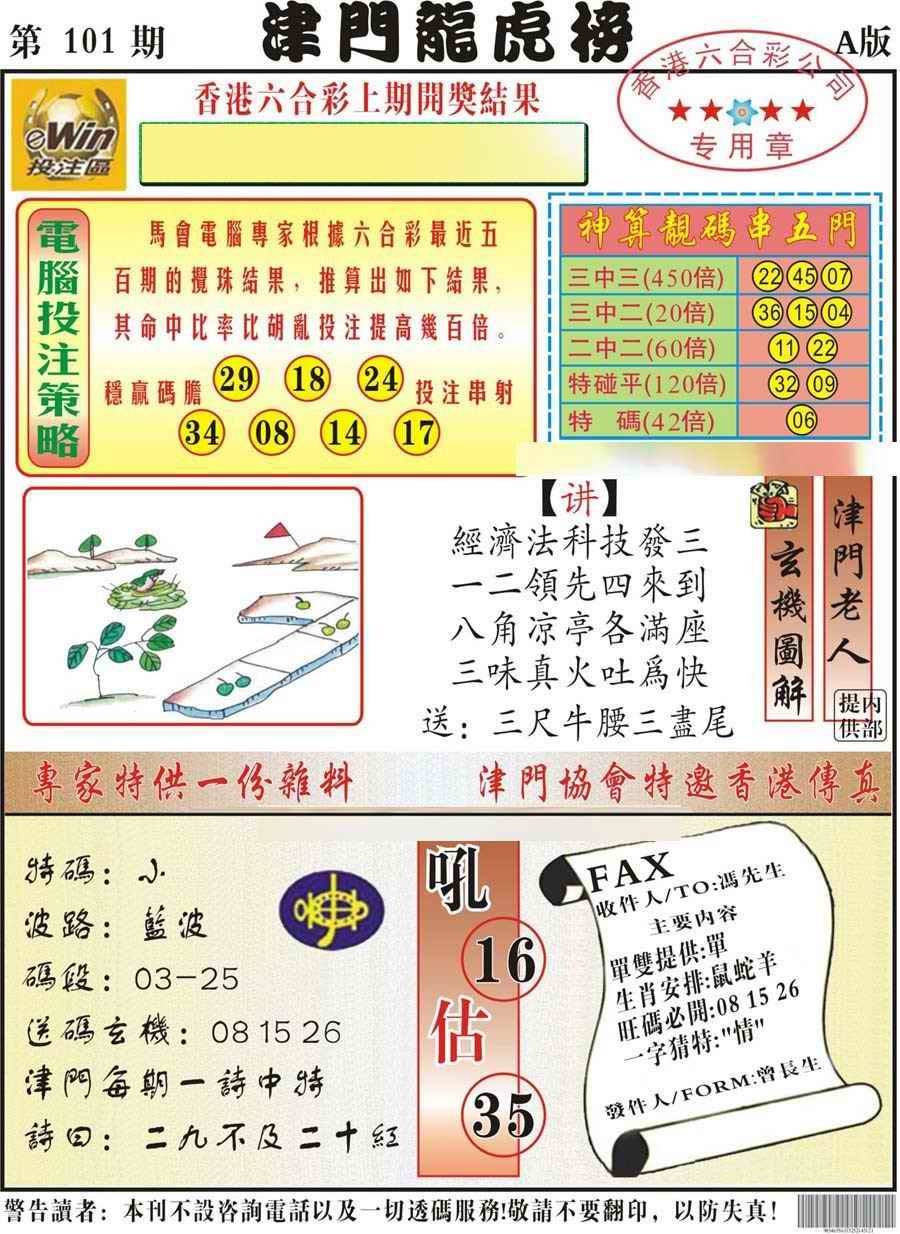 第 101 期
津門龍虎榜
A版
eWin
投注區
香港六合彩上期開獎結果
香港六合彩公司
专用章
電腦投注策略
馬會電腦專家根據六合彩最近五
百期的攪珠結果，推算出如下結果，
其命中比率比胡亂投注提高幾百倍。
穩贏碼膽 29 18 24 投注串射
34 08 14 17
神算靚碼串五門
三中三(450倍) 22 45 07
三中二(20倍) 36 15 04
二中二(60倍) 11 22
特碰平(120倍) 32 09
特 碼(42倍) 06
【讲】
經濟法科技發三
一二領先四來到
八角凉亭各滿座
三味真火吐爲快
送：三尺牛腰三盡尾
玄機圖解
津門老人
内部提供
專家特供一份雜料
津門協會特邀香港傳真
特碼：小
波路：藍波
碼段：03－25
送碼玄機：08 15 26
津門每期一詩中特
詩曰：二九不及二十紅
吼
16
估
35
FAX
收件人/TO:馮先生
主要内容
單雙提供:單
生肖安排:鼠蛇羊
旺碼必開:08 15 26
一字猜特:"情"
發件人/FORM:曾長生
警告讀者：本刊不設咨詢電話以及一切透碼服務!敬請不要翻印，以防失真!